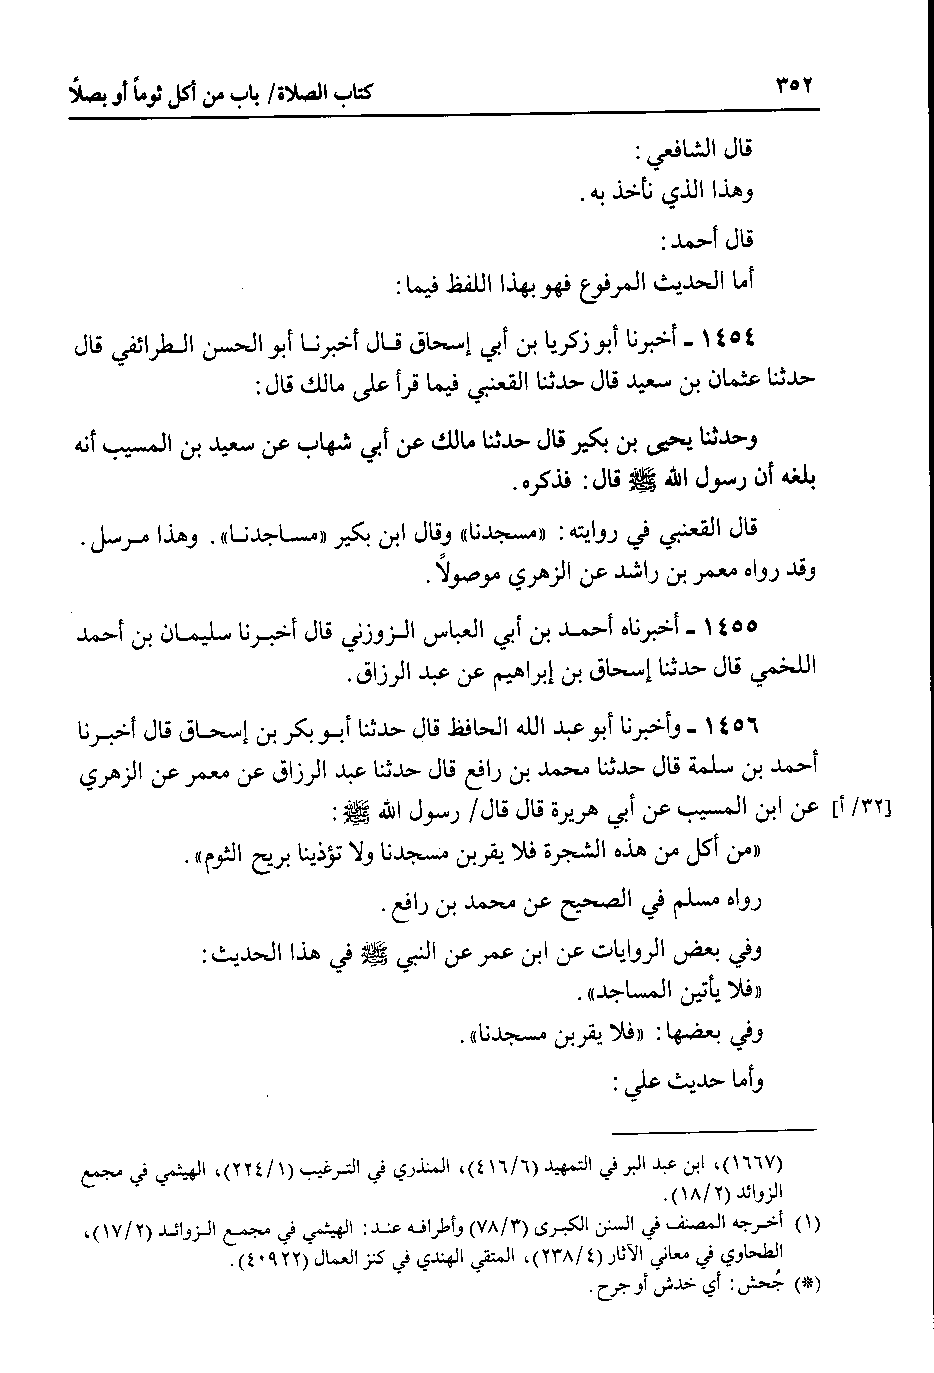 ٣٥٢
كتاب الصلاة/ باب من أكل ثوماً أو بصلاً
قال الشافعي :
وهذا الذي نأخذ به .
قال أحمد :
أما الحديث المرفوع فهو بهذا اللفظ فيما :
١٤٥٤ - أخبرنا أبو زكريا بن أبي إسحاق قال أخبرنا أبو الحسن الطرائفي قال
حدثنا عثمان بن سعيد قال حدثنا القعنبي فيما قرأ على مالك قال :
وحدثنا يحيى بن بكير قال حدثنا مالك عن أبي شهاب عن سعيد بن المسيب أنه
بلغه أن رسول الله ﷺ قال : فذكره .
قال القعنبي في روايته : «مسجدنا» وقال ابن بكير «مساجدنا» . وهذا مرسل .
وقد رواه معمر بن راشد عن الزهري موصولاً .
١٤٥٥ - أخبرناه أحمد بن أبي العباس الزوزني قال أخبرنا سليمان بن أحمد
اللخمي قال حدثنا إسحاق بن إبراهيم عن عبد الرزاق .
١٤٥٦ - وأخبرنا أبو عبد الله الحافظ قال حدثنا أبو بكر بن إسحاق قال أخبرنا
أحمد بن سلمة قال حدثنا محمد بن رافع قال حدثنا عبد الرزاق عن معمر عن الزهري
[٣٢/ أ] عن ابن المسيب عن أبي هريرة قال قال/ رسول الله ﷺ :
«من أكل من هذه الشجرة فلا يقربن مسجدنا ولا تؤذينا بريح الثوم» .
رواه مسلم في الصحيح عن محمد بن رافع .
وفي بعض الروايات عن ابن عمر عن النبي ﷺ في هذا الحديث :
«فلا يأتين المساجد» .
وفي بعضها : «فلا يقربن مسجدنا» .
وأما حديث علي :
(١٦٦٧)، ابن عبد البر في التمهيد (٤١٦/٦)، المنذري في الترغيب (٢٢٤/١)، الهيثمي في مجمع
الزوائد (١٨/٢).
(١) أخرجه المصنف في السنن الكبرى (٧٨/٣) وأطرافه عند : الهيثمي في مجمع الزوائد (١٧/٢)،
الطحاوي في معاني الآثار (٢٣٨/٤)، المتقي الهندي في كنز العمال (٤٠٩٢٢) .
(*) جُحش : أي خدش أو جرح .